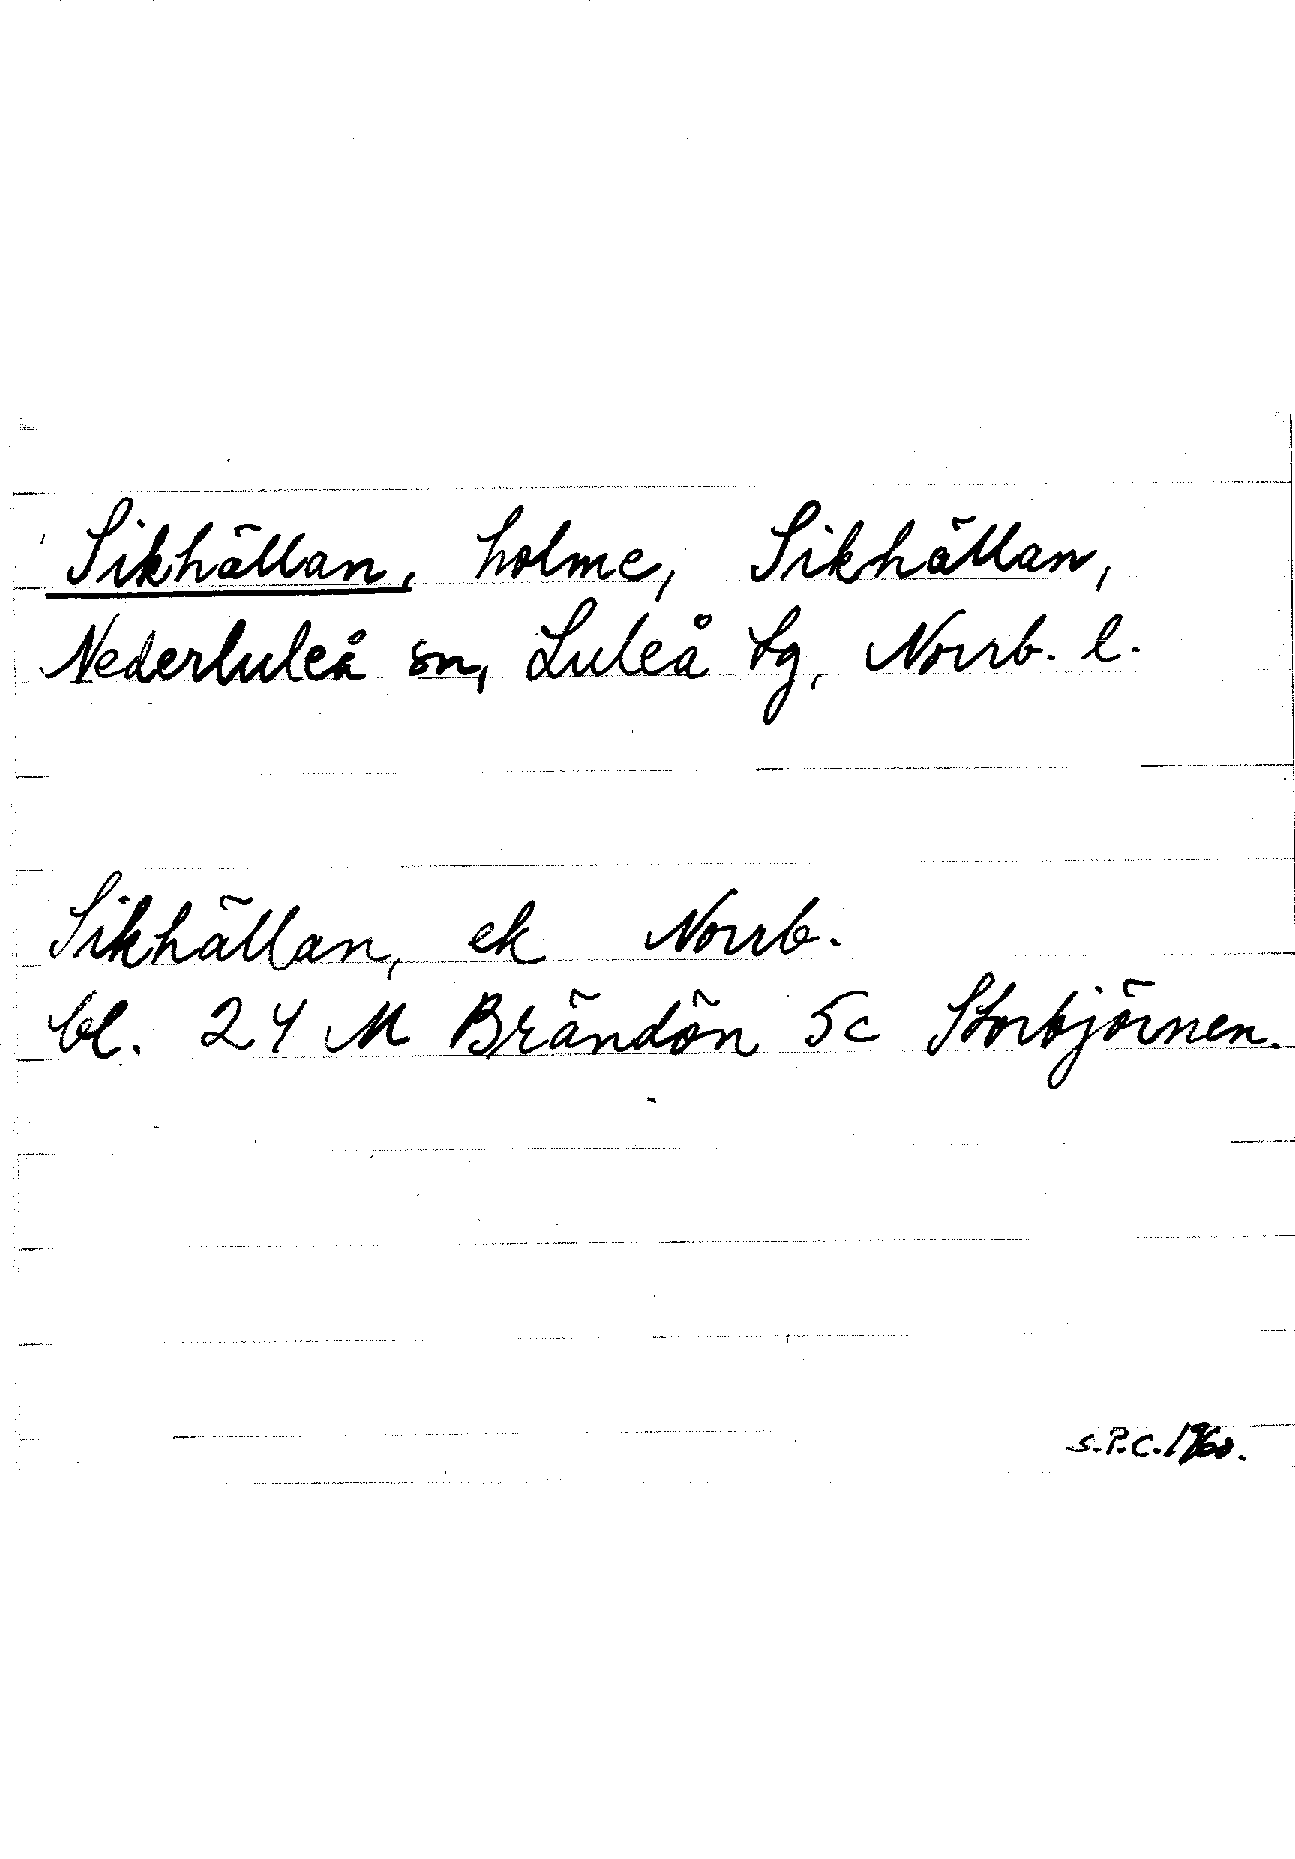 Sikhällan, holme, Sikhällan,
Nederluleå sn, Luleå tg, Norrb. l.
Sikhällan, ek Norrb.
bl. 24 M Brändön 5c Storbjörnen.
S.P.C. 1960.